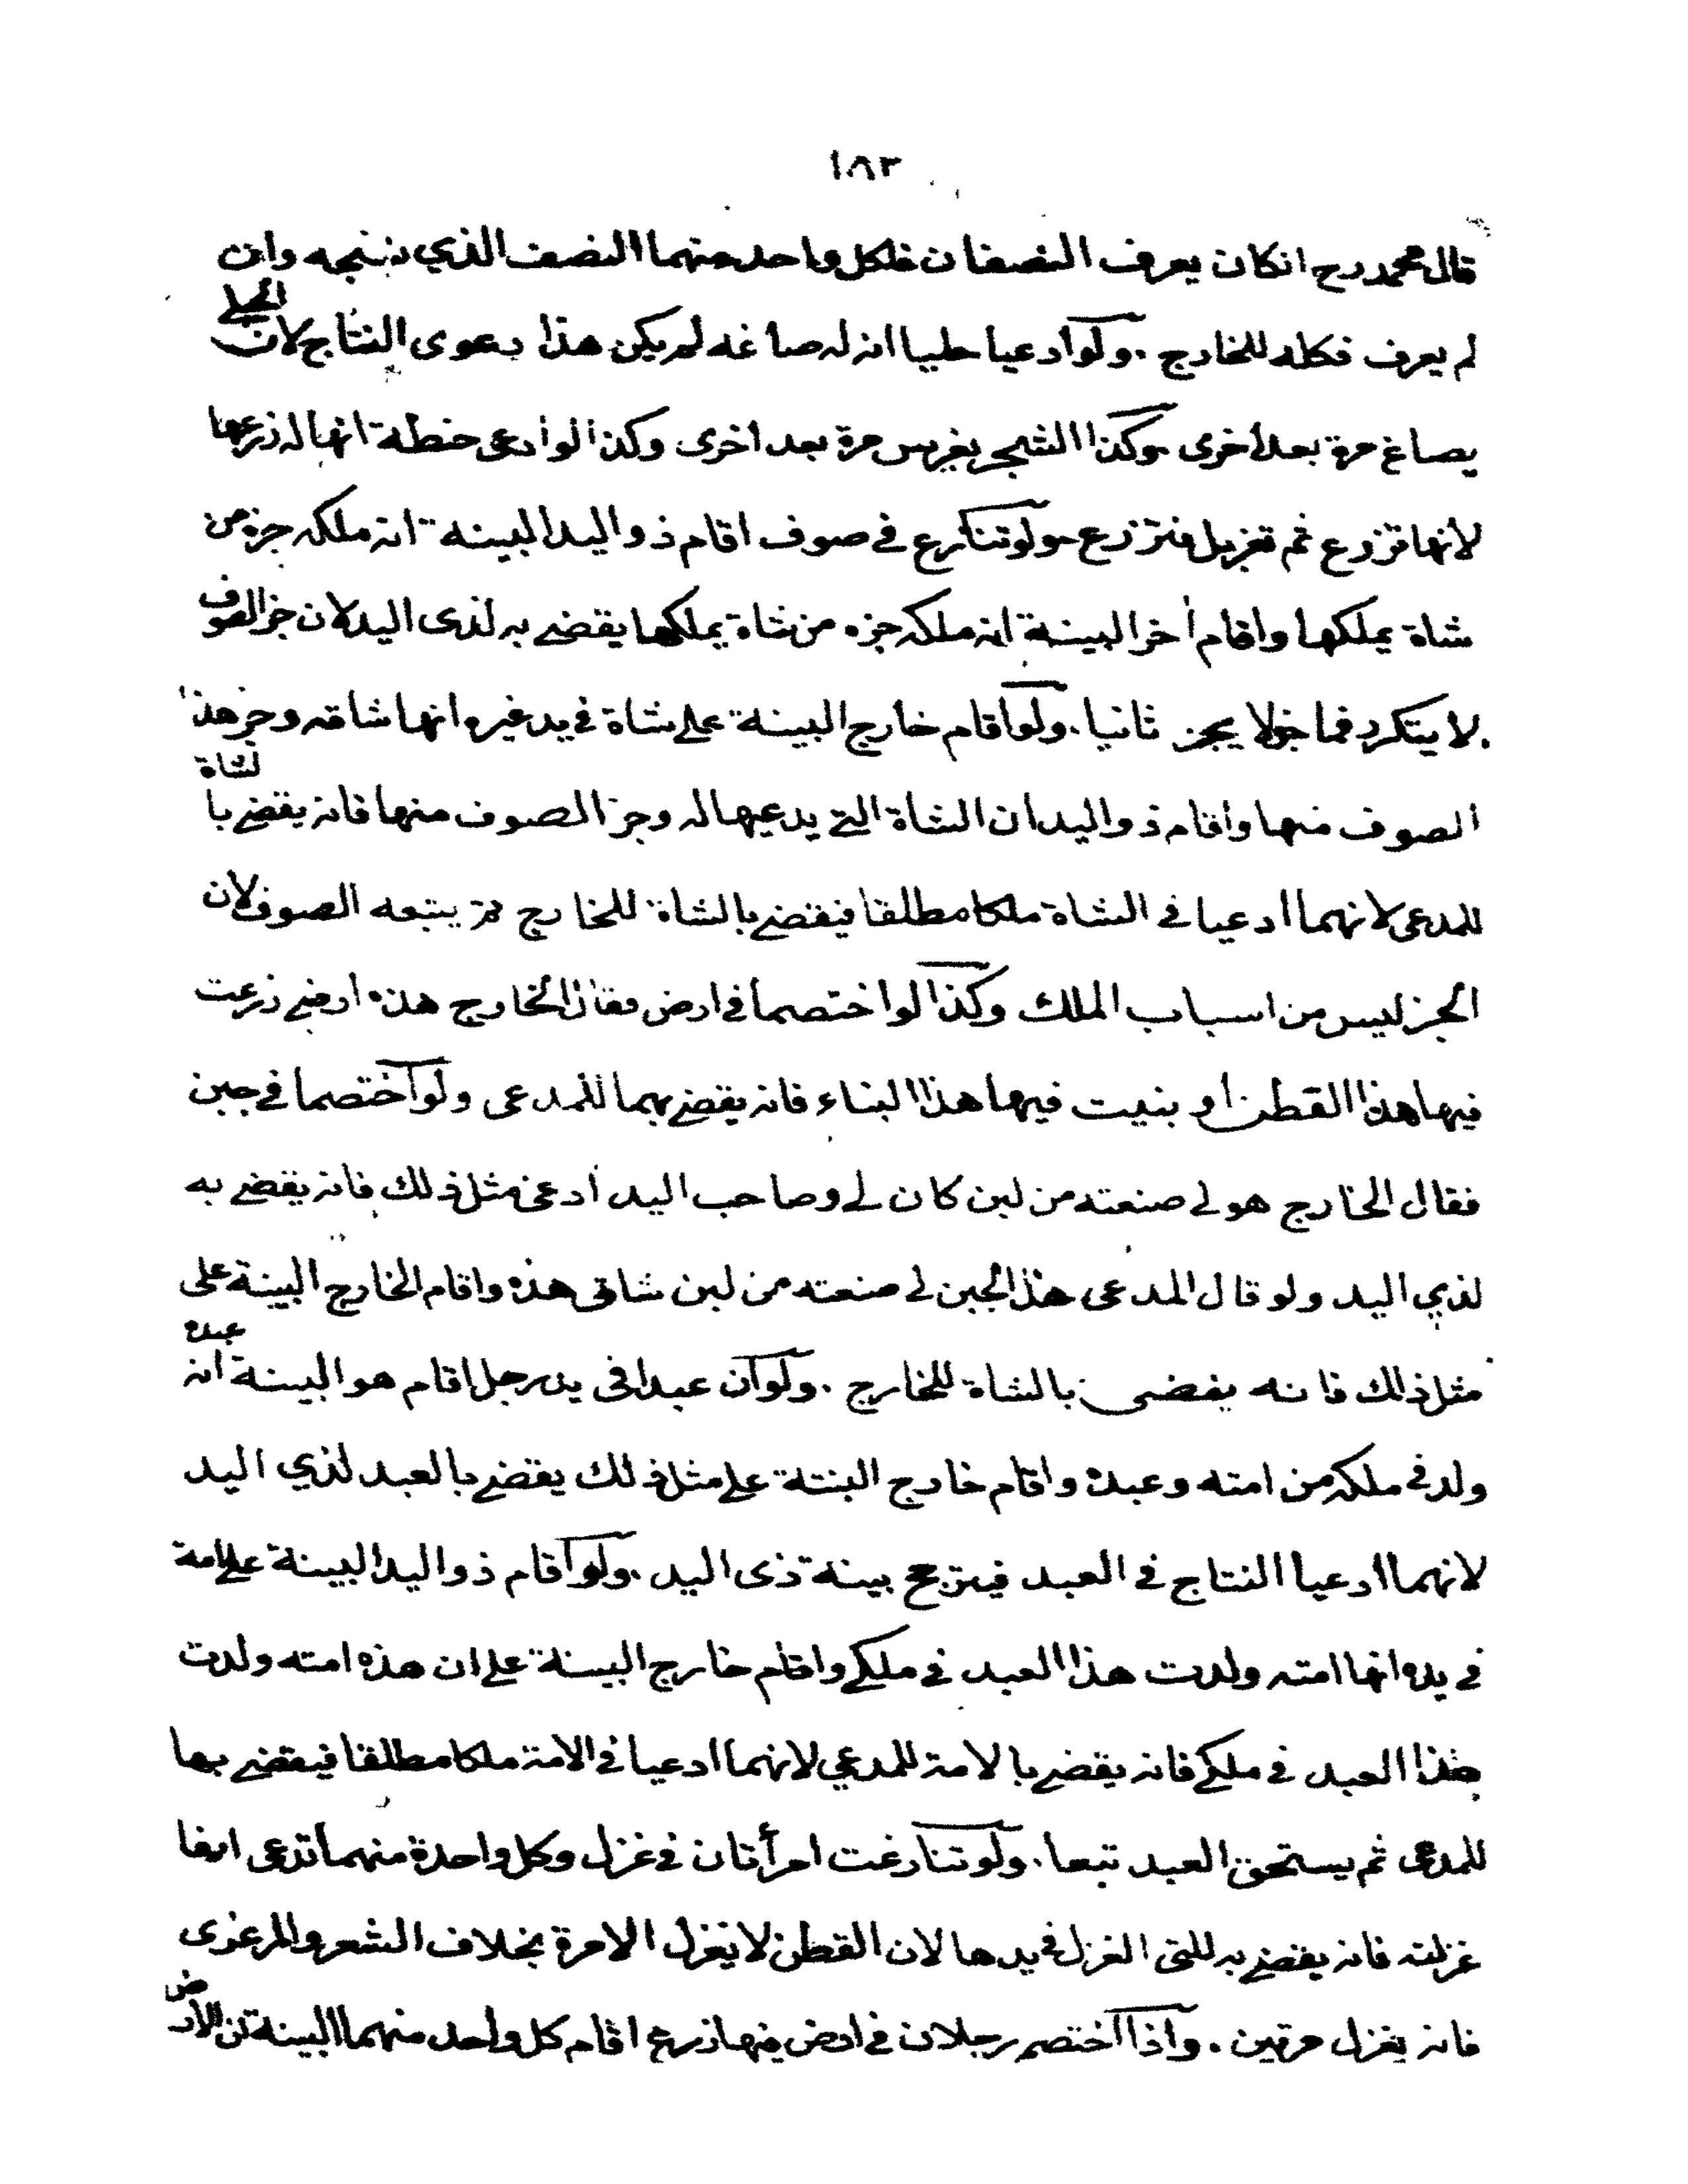 ١٨٣
قال محمد رح انكان يعرف النصفان فلكل واحد منهما النصف الذي نسجه وان
لم يعرف فكله للخارج . ولو ادعيا حليا انه له صاغه لم يكن هذا بدعوى النتاج لان الحلي
يصاغ مرة بعد اخرى وكذا الشجر يغرس مرة بعد اخرى وكذا لو ادعى حنطة انها له زرعها
لانها تزرع ثم تغربل فتزرع ولو تنازع في صوف اقام ذو اليد البينة انه ملكه جزه من
شاة يملكها واقام اخر البينة انه ملكه جزه من شاة يملكها يقضے به لذى اليد لان جز الصوف
لا يتكرر فما جز لا يجز ثانيا . ولو اقام خارج البينة علے شاة في يد غيره انها شاته وجز هذا
الصوف منها واقام ذو اليد ان الشاة التي يدعيها له وجز الصوف منها فانه يقضے بالشاة
للمدعى لانهما ادعيا في الشاة ملكا مطلقا فيقضے بالشاة للخارج ثم يتبعه الصوف لان
الجز ليس من اسباب الملك وكذا لو اختصما في ارض فقال الخارج هذه ارضي زرعت
فيها هذا القطن او بنيت فيها هذا البناء فانه يقضے بهما للمدعى ولو اختصما في جبن
فقال الخارج هو لي صنعته من لبن كان لے وصاحب اليد ادعى مثل ذلك فانه يقضے به
لذي اليد ولو قال المدعى هذا الجبن لے صنعته من لبن شاتى هذه واقام الخارج البينة على
مثل ذلك فانه يقضى بالشاة للخارج . ولو ان عبدا فى يد رجل اقام هو البينة انه عبده
ولد في ملكه من امته وعبده واقام خارج البينة علے مثل ذلك يقضے بالعبد لذي اليد
لانهما ادعيا النتاج في العبد فيترجح بينة ذى اليد . ولو اقام ذو اليد البينة علے امة
في يده انها امته ولدت هذا العبد في ملكے واقام خارج البينة علے ان هذه امته ولدت
هذا العبد في ملكے فانه يقضے بالامة للمدعي لانهما ادعيا في الامة ملكا مطلقا فيقضے بها
للمدعى ثم يستحق العبد تبعا . ولو تنازعت امرأتان في غزل وكل واحدة منهما تدعى انها
غزلته فانه يقضے به للتى الغزل في يدها لان القطن لا يغزل الا مرة بخلاف الشعر والمرعزى
فانه يغزل مرتين . واذا اختصم رجلان في ارض فيها زرع اقام كل واحد منهما البينة ان الارض